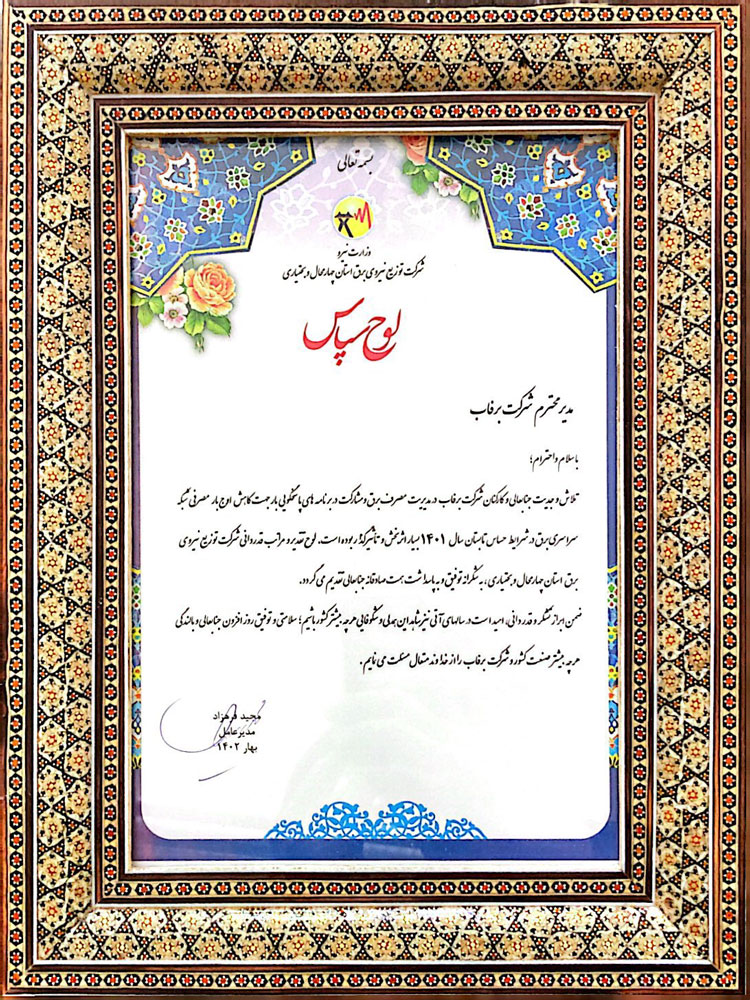 بسمه تعالی
وزارت نیرو
شرکت توزیع نیروی برق استان چهارمحال و بختیاری
لوح سپاس
مدیر محترم شرکت برفاب
با سلام و احترام؛
تلاش و جدیت جنابعالی و کارکنان شرکت برفاب در مدیریت مصرف برق و مشارکت در برنامه های پاسخگویی بار جهت کاهش اوج بار مصرفی شبکه
سراسری برق در شرایط حساس تابستان سال ۱۴۰۱ بسیار اثربخش و تأثیرگذار بوده است. لوح تقدیر و مراتب قدردانی شرکت توزیع نیروی
برق استان چهارمحال و بختیاری، به شکرانه توفیق و به پاسداشت همت صادقانه جنابعالی تقدیم می گردد.
ضمن ابراز تشکر و قدردانی، امید است در سالهای آتی نیز شاهد این همدلی و شکوفایی هرچه بیشتر کشور باشیم؛ سلامتی و توفیق روز افزون جنابعالی و بالندگی
هرچه بیشتر صنعت کشور و شرکت برفاب را از خداوند متعال مسئلت می نمایم.
مجید فرهزاد
مدیرعامل
بهار ۱۴۰۲